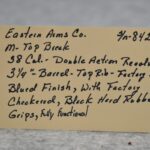 Eastern Arms Co. S/n-842
M-Top Break
38 Cal.- Double Action Revol
3 1/4"- Barrel-Top Rib- Factory
Blued Finish, With Factory
Checkered, Black Hard Rubber
Grips, Fully Functional